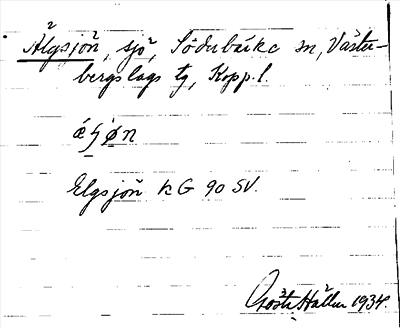 Älgsjön, sjö, Söderbärke sn, Väster-
bergslags tg, Kopp. l.
Elgsjön KG 90 SV.
Gösta Hallen 1934.